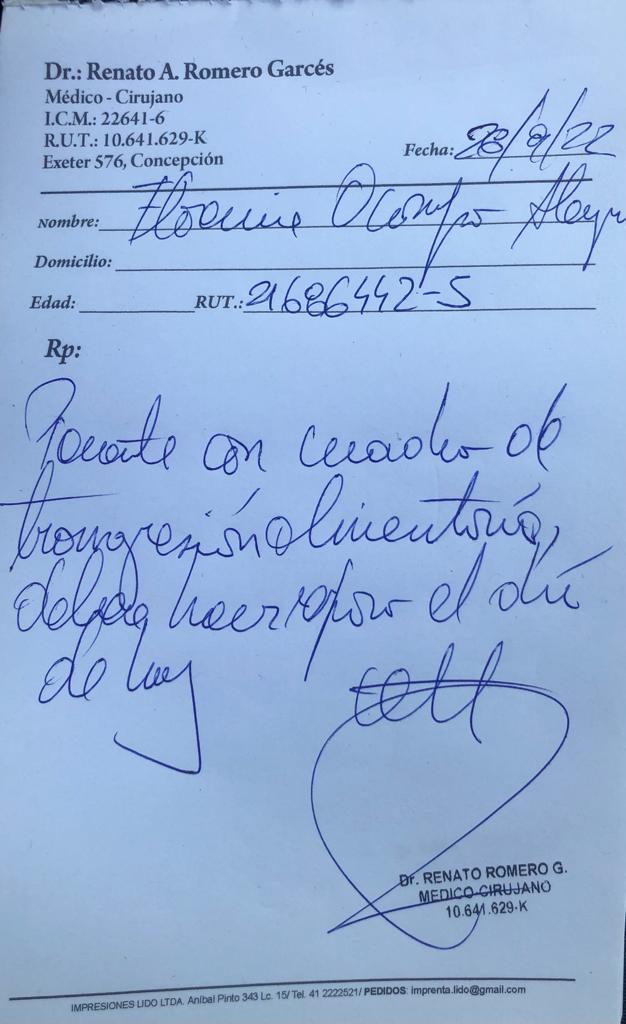 Dr.: Renato A. Romero Garcés
Médico - Cirujano
I.C.M.: 22641-6
R.U.T.: 10.641.629-K
Exeter 576, Concepción
Fecha: 28/9/22
Nombre: Ocampo
Domicilio:
Edad: RUT.: 21686442-5
Rp:
Paciente con cuadro de
transgresión alimentaria,
debe hacer reposo el día
de hoy
Dr. RENATO ROMERO G.
MEDICO-CIRUJANO
10.641.629-K
IMPRESIONES LIDO LTDA. Aníbal Pinto 343 Lc. 15/ Tel. 41 2222521/ PEDIDOS: imprenta.lido@gmail.com